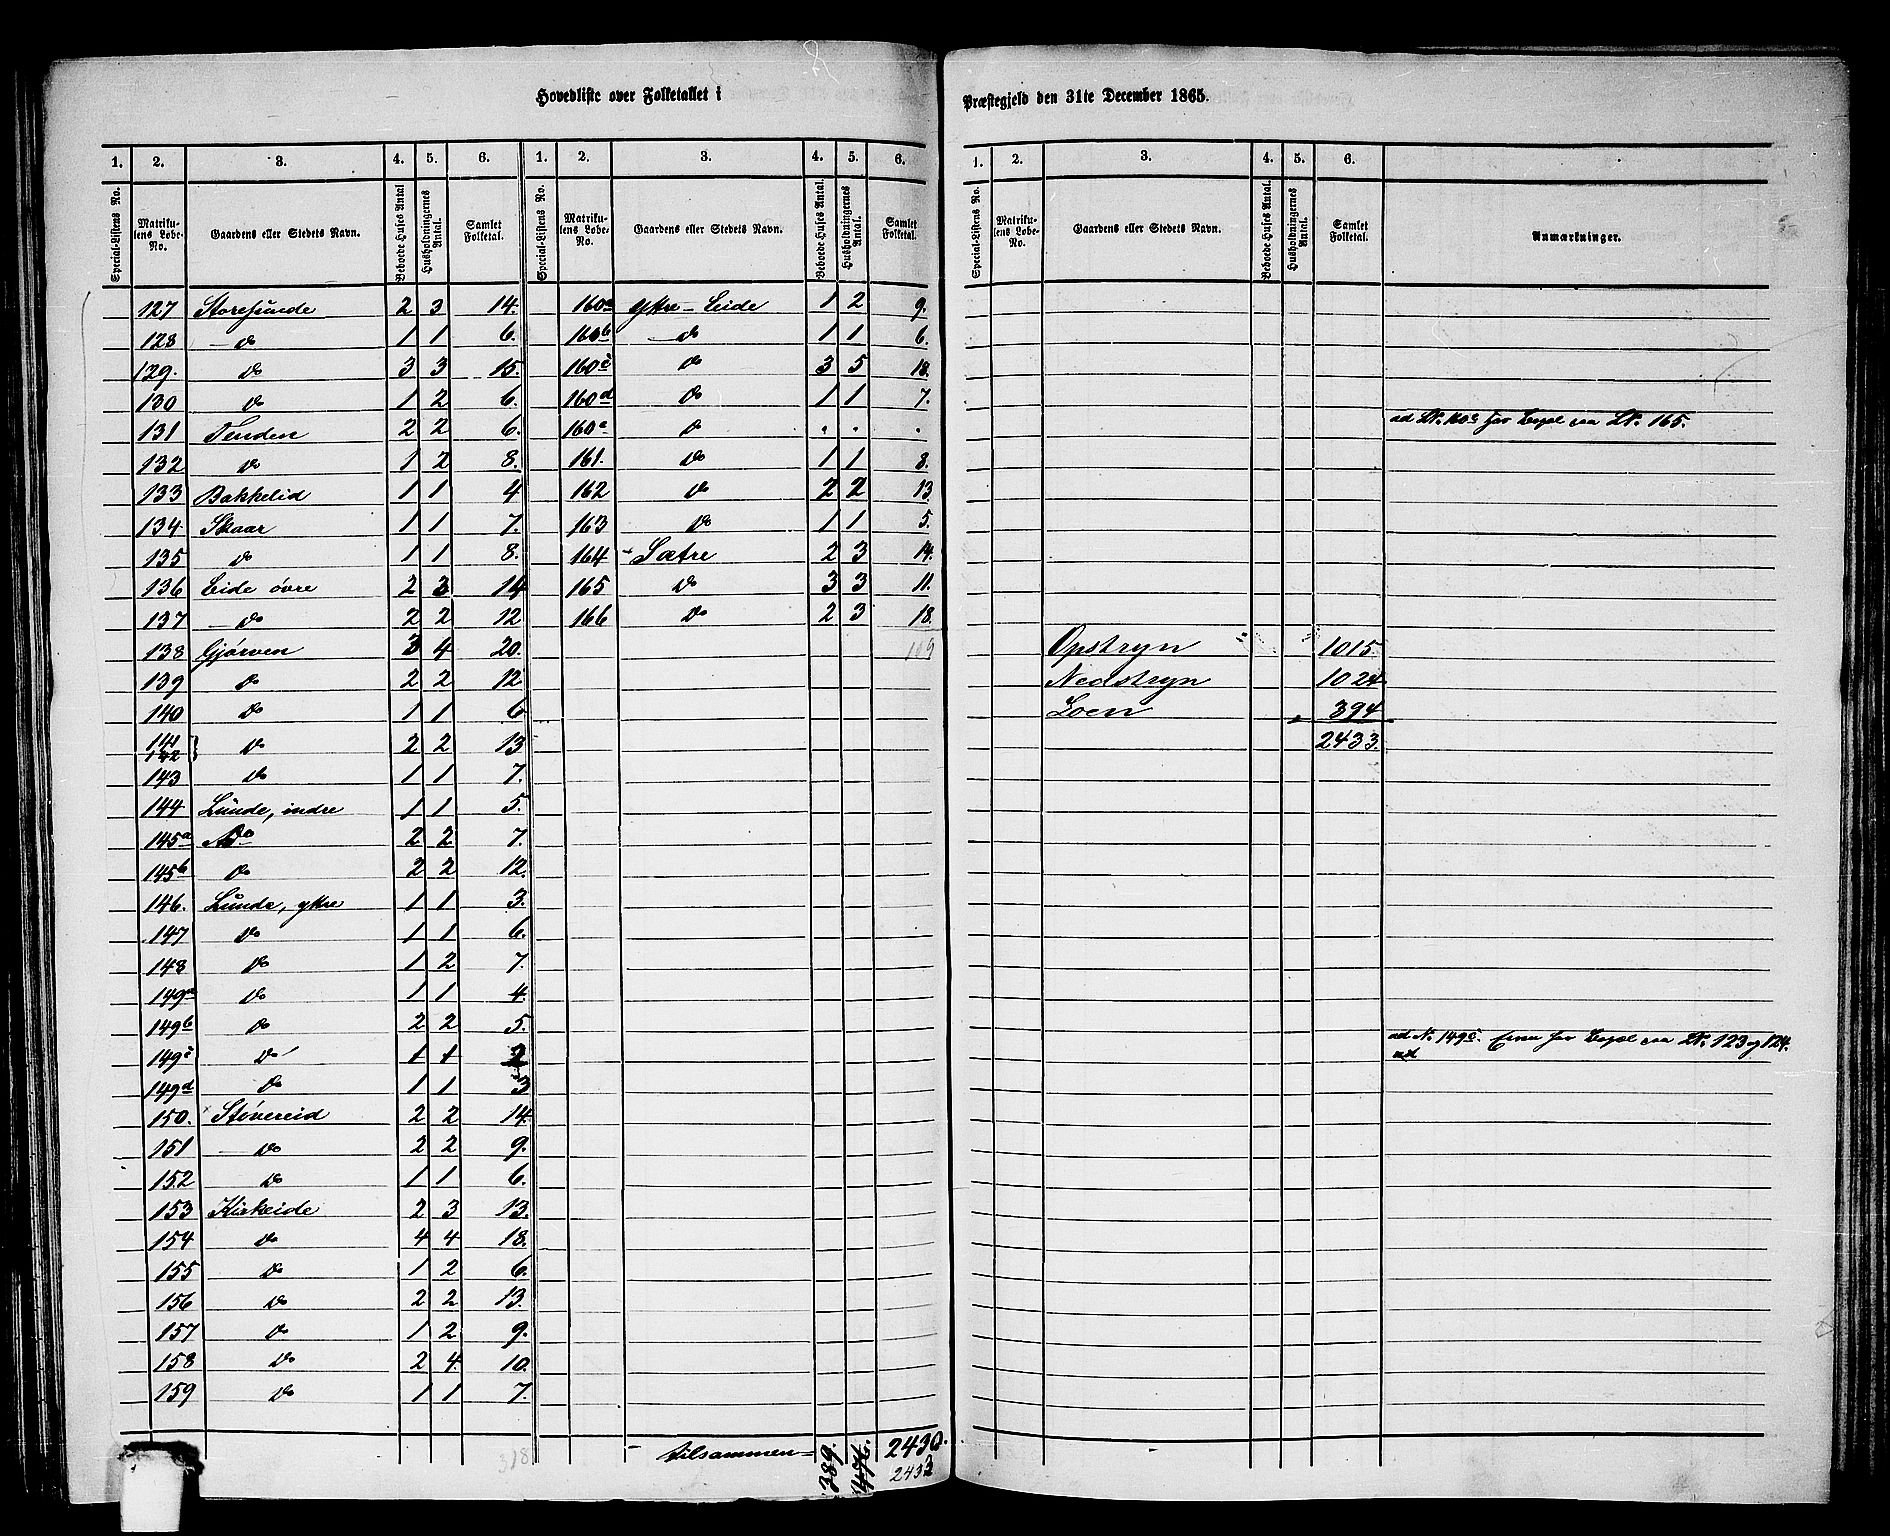 Hovedliste over Folketallet i
1. 2. 3. 4. 5. 6. 1. 2. 3. 4. 5. 6.
Special-Listens No. Matrikulens Løbe-No. Gaardens eller Stedets Navn. Beboede Huses Antal Husholdningernes Antal. Samlet Folketal. Special-Listens No. Matrikulens Løbe-No. Gaardens eller Stedets Navn. Beboede Huses Antal. Husholdningernes Antal. Samlet Folketal.
127 Storesunde 2 3 14. 160a Yttre-Eide 1 2 9.
128 - do 1 1 6. 160b - do 1 1 6.
129. do 3 3 15. 160c do 3 5 18.
130 do 1 2 6. 160d do 1 1 7.
131 Tenden 2 2 6. 160e do . . .
132 do 1 2 8. 161. do 1 1 8.
133 Bakkelid 1 1 4 162 do 2 2 13.
134 Skaar 1 1 7. 163 do 1 1 5.
135 do 1 1 8. 164 - Sætre 2 3 14.
136 Eide øvre 2 3 14 165 do 3 3 11.
137 - do 2 2 12 166 do 2 3 18.
138 Gjørven 3 4 20. 109
139 do 2 2 12
140 do 1 1 6
141 142 } do 2 2 13
143 do 1 1 7.
144 Lunde, indre 1 1 5.
145a do 2 2 7.
145b do 2 2 12.
146. Lunde, yttre 1 1 3.
147 do 1 1 6.
148 do 1 2 7.
149a do 1 1 4.
149b do 2 2 5.
149c do 1 1 2
149d do 1 1 3
150. Støvereid 2 2 14.
151 - do 2 2 9.
152 do 1 1 6.
153 Kirkeide 2 3 13.
154 do 4 4 18.
155 do 1 2 6.
156 do 2 2 13.
157 do 1 2 9.
158 do 2 4. 10.
159 do 1 1 7.
318 tilsammen = 389. 476. 2430.
2433
Præstegjeld den 31te December 1865.
1. 2. 3. 4. 5. 6.
Special-Listens No. Matrikulens Løbe-No. Gaardens eller Stedets Navn. Beboede Huses Antal. Husholdningernes Antal. Samlet Folketal. Anmærkninger.
ad Lº. 160e har Bopel paa Lº. 165.
Opstryn 1015.
Nedstryn 1024
Loen 394
2433.
ad Nº 149c. har Bopæl paa Lº. 123 og 124.